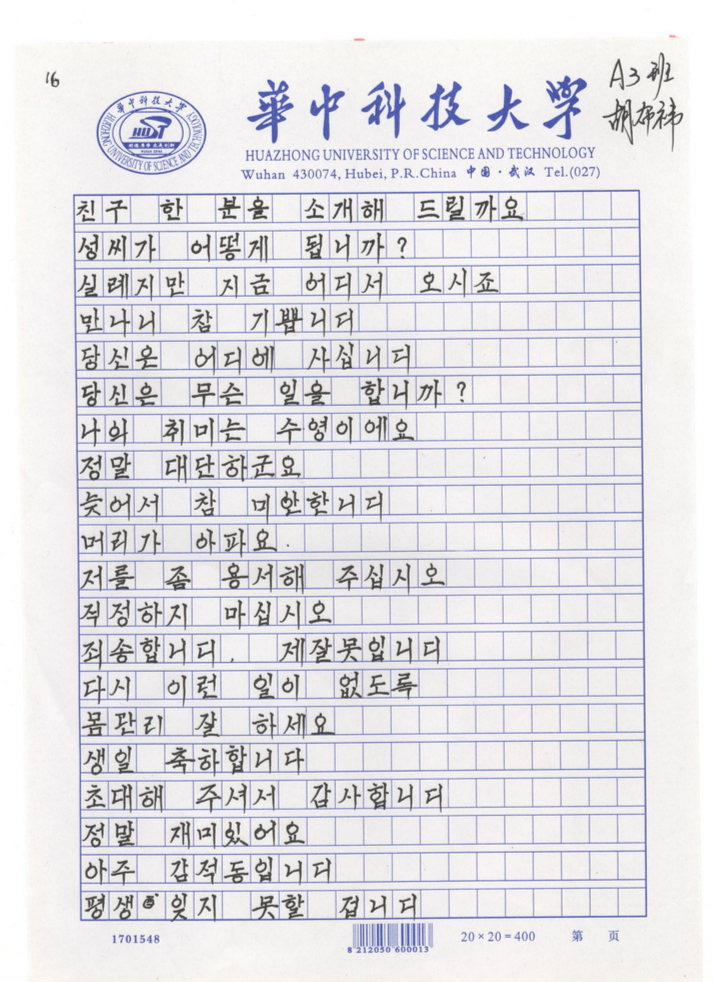 16
A3班
華中科技大學
HUAZHONG UNIVERSITY OF SCIENCE AND TECHNOLOGY
Wuhan 430074, Hubei, P.R.China 中国·武汉 Tel.(027)
친구 한 분을 소개해 드릴까요
성씨가 어떻게 됩니까?
실례지만 지금 어디서 오시죠
만나니 참 기쁩니디
당신은 어디에 사십니디
당신은 무슨 일을 합니까?
나와 취미는 수영이에요
정말 대단하군요
늦어서 참 미안한니디
머리가 아파요.
저를 좀 용서해 주십시오
적정하지 마십시오
죄송합니디. 제잘못입니디
다시 이런 일이 없도록
몸관리 잘 하세요
생일 축하합니다
초대해 주셔서 감사합니디
정말 재미있어요
아주 감적동입니디
평생 잊지 못할 겁니디
1701548
8 212050 600013
20×20=400 第 页